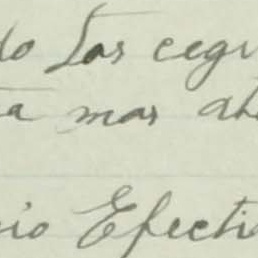 do las cegu
ta mas ah
io Efecti